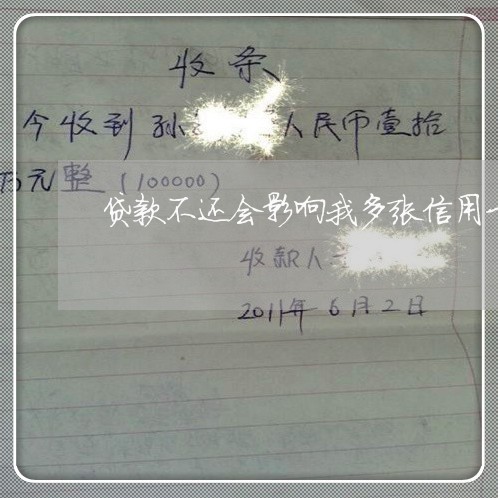 收条
今收到孙 人民币壹拾
万元整（100000）
贷款不还会影响我多张信用
收款人
2011年6月2日